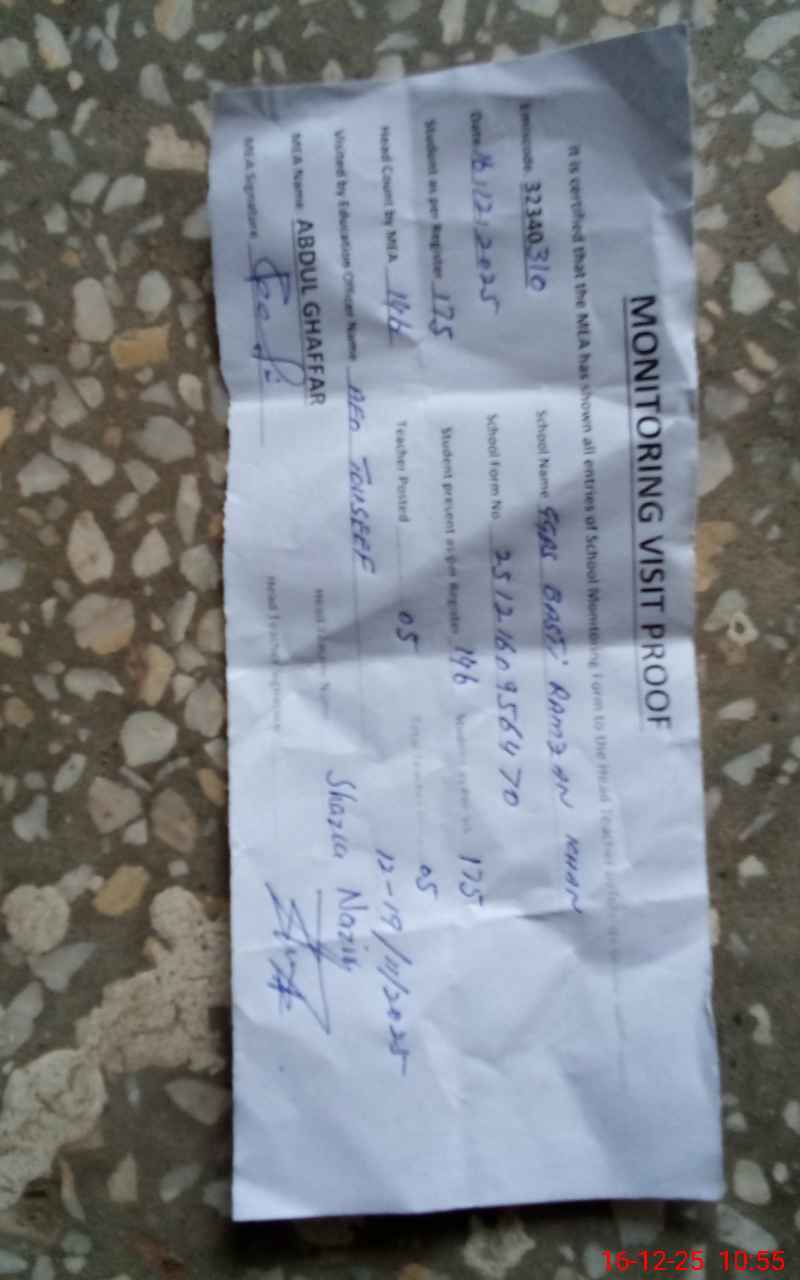 MONITORING VISIT PROOF
It is certified that the MEA has shown all entries of School Monitoring Form to the Head Teacher
Emiscode 32340310 School Name GGPS BASTI RAMZAN KHAN
Date 16.12.2025 School Form No 2512160956470
Student as per Register 175 Student present as per Register 146 175
Head Count by MEA 146 Teacher Posted 05 05
Visited by Education Officer Name AEO TOUSEEF 12-19/11/2025
MEA Name ABDUL GHAFFAR Head Teacher Name Shazia Nazir
MEA Signature Head Teacher Signature
16-12-25 10:55